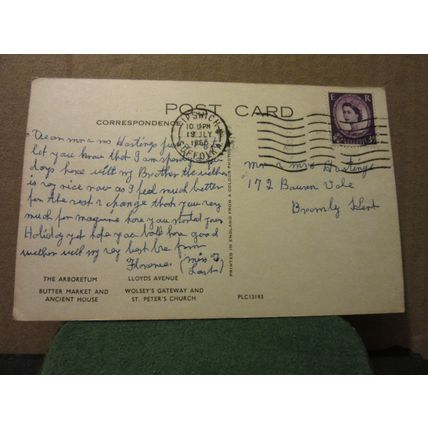 POST CARD
CORRESPONDENCE
IPSWICH
10 PM
19 JLY
1960
SUFFOLK
E R
Dear mr & mrs Hastings just
let you know that I am
days here with my Brother the weather
is very nice now as I feel much better
for the rest & change thank you very
much for magazine have you started your
Holiday yet hope you both have good
weather with my very best
Florence (Miss F
Mr & Mrs Hastings
172 Vale
Bromley Kent
THE ARBORETUM LLOYDS AVENUE
BUTTER MARKET AND WOLSEY'S GATEWAY AND
ANCIENT HOUSE ST. PETER'S CHURCH
PLC13193
PRINTED IN ENGLAND FROM A COLOUR